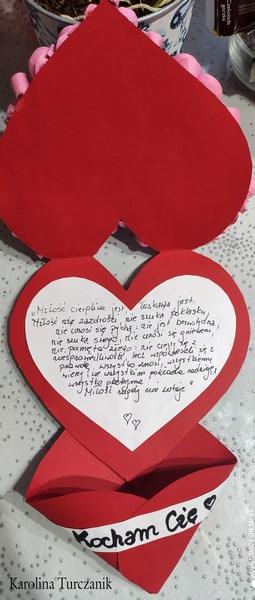 "Miłość cierpliwa jest, łaskawa jest.
Miłość nie zazdrości, nie szuka poklasku,
nie unosi się pychą; nie jest bezwstydna,
nie szuka swego, nie unosi się gniewem,
nie pamięta złego; nie cieszy się z
niesprawiedliwości, lecz współweseli się z
prawdą. wszystko znosi, wszystkiemu
wierzy, we wszystkim pokłada nadzieję,
wszystko przetrzyma.
Miłość nigdy nie ustaje"
Kocham Cię
Karolina Turczanik